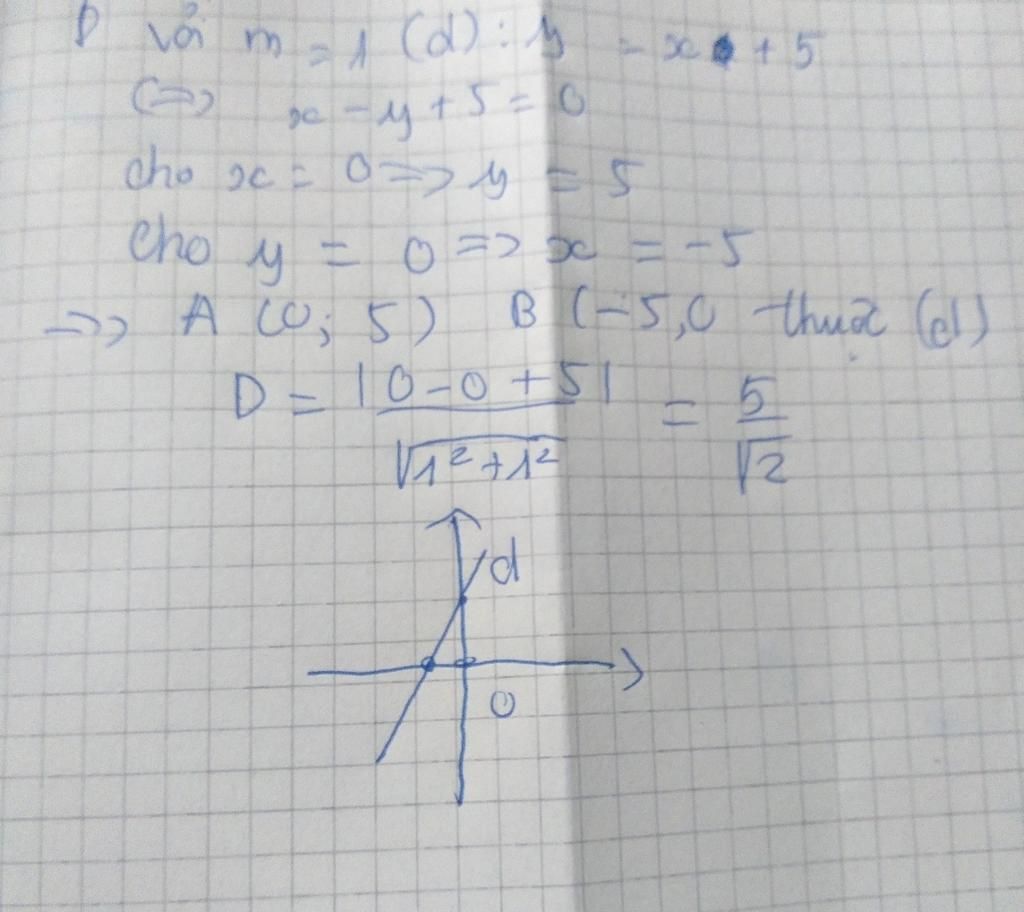 Với m = 1 (d): y = x + 5
<=> x - y + 5 = 0
cho x = 0 => y = 5
cho y = 0 => x = -5
=> A (0; 5) B (-5,0 thuộc (d)
D = |0 - 0 + 5| / √1² + 1² = 5 / √2
d
0